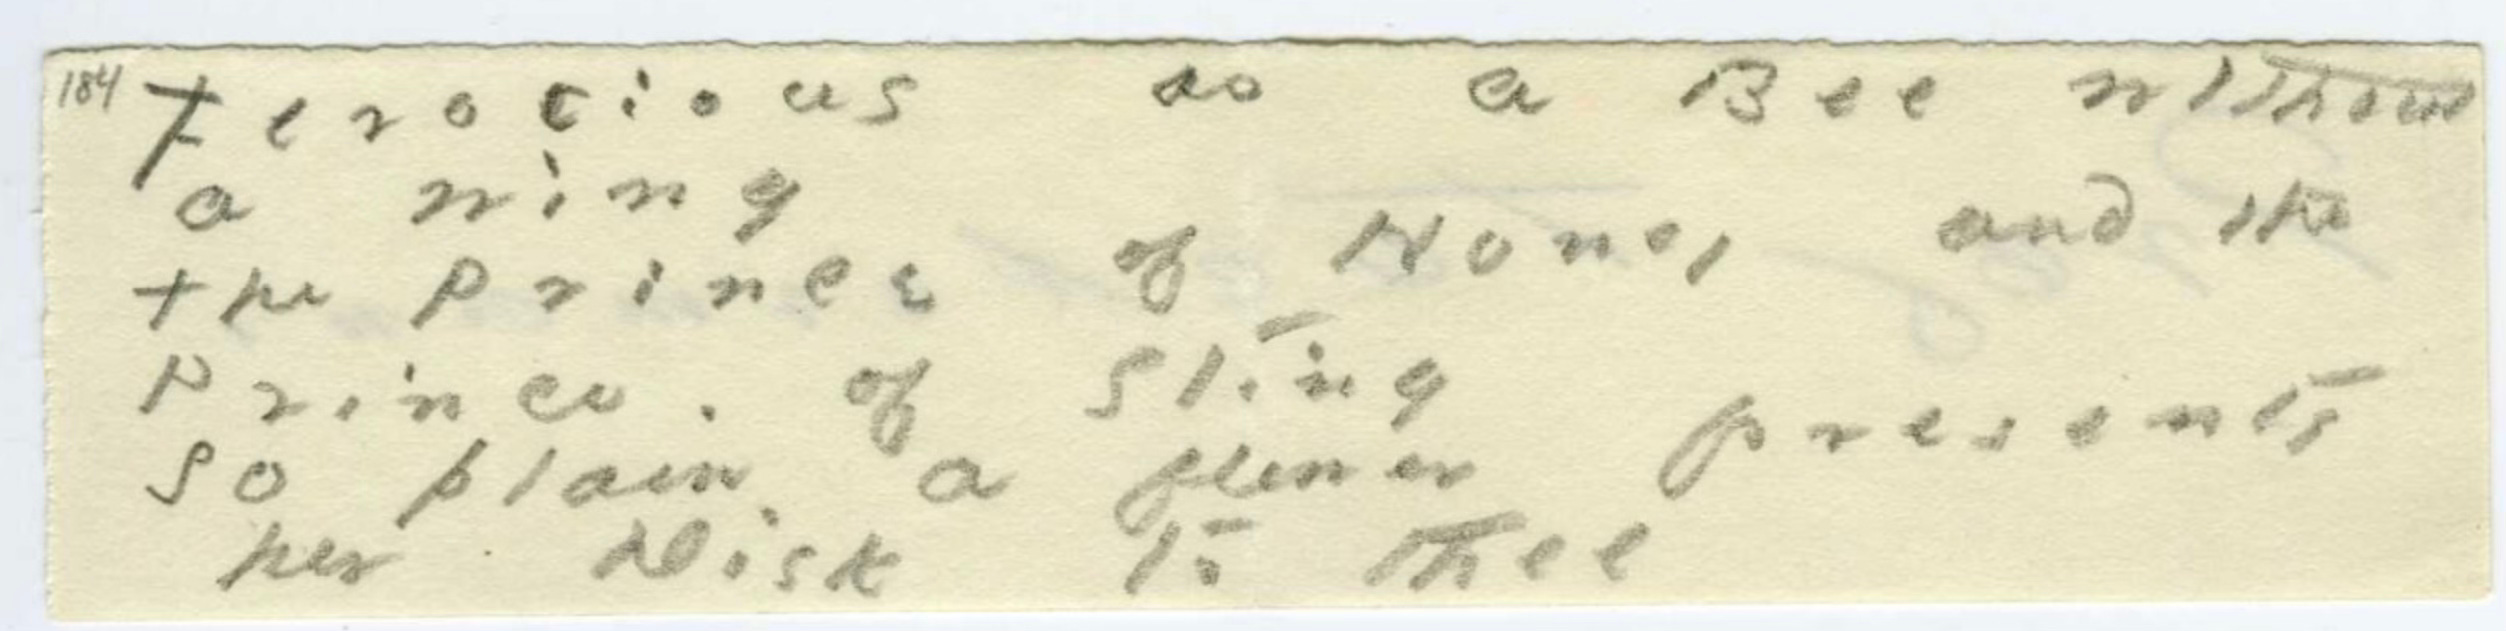 184 Ferocious as a Bee without
a wing
the Prince of Honey and the
Prince. of Sting
So plain a flower presents
her Disk to thee